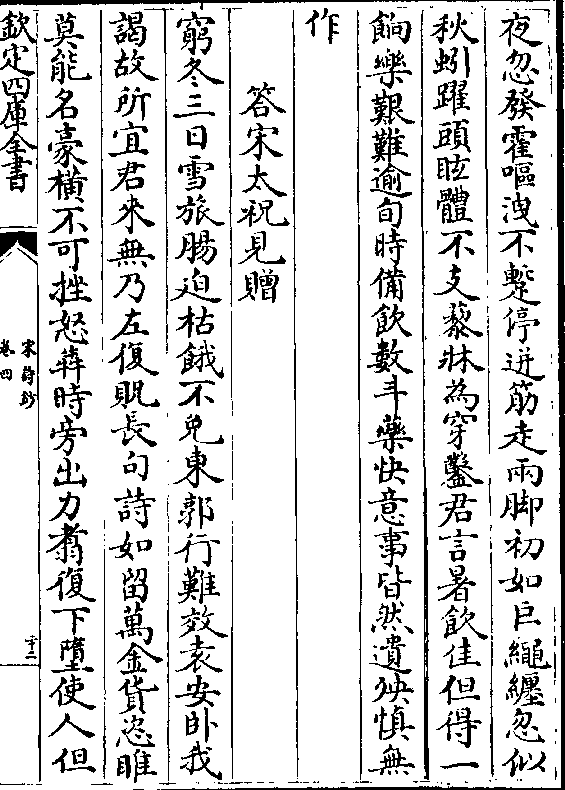 夜忽發霍嘔洩不蹔停迸筋走兩脚初如巨繩纏忽似
秋蚓躍頭眩體不支藜牀為穿鑿君言暑飲佳但得一
餉樂艱難逾旬時備飲數斗藥快意事皆然遺殃慎無
作
答宋太祝見贈
窮冬三日雪旅腸迫枯餓不免東郭行難效袁安卧我
謁故所宜君來無乃左復貺長句詩如留萬金貨恣睢
莫能名豪橫不可挫怒犇時旁出力翥復下墮使人但
欽定四庫全書
宋詩鈔
卷四
二十二